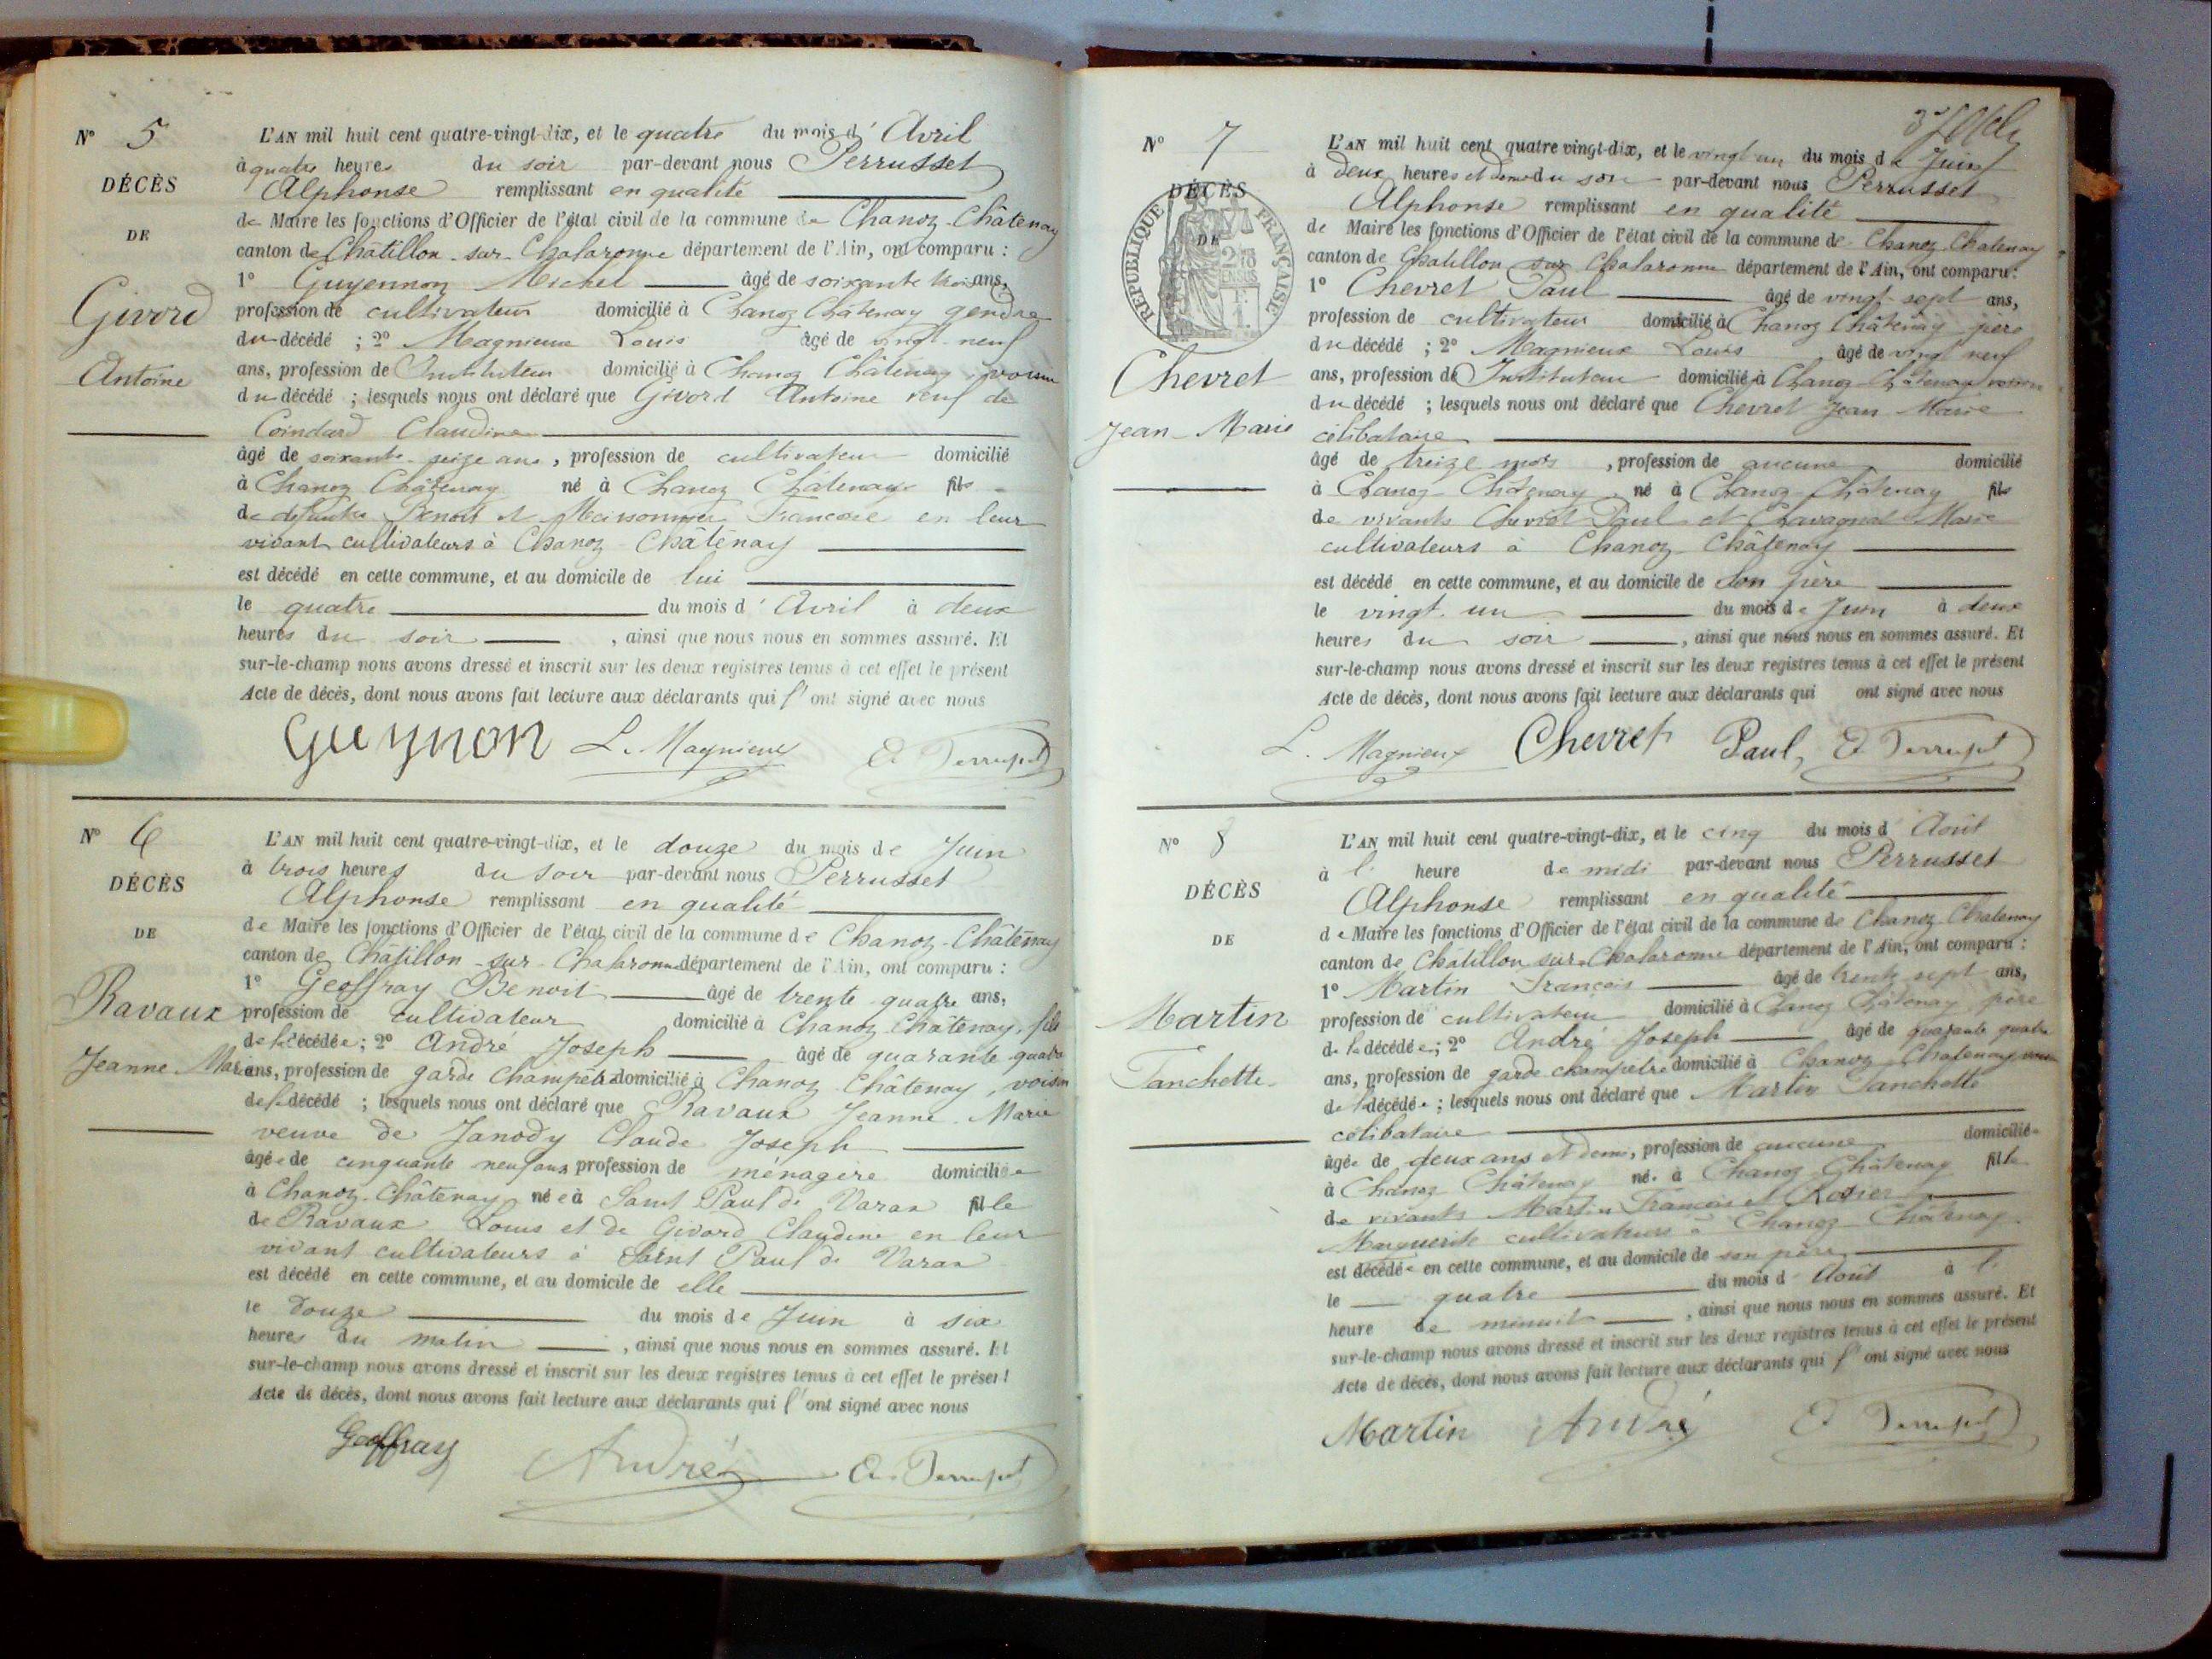 N° 5
DÉCÈS
DE
Givord
Antoine
L'AN mil huit cent quatre-vingt-dix, et le quatre du mois d' Avril
à quatre heures du soir par-devant nous Perrusset
Alphonse remplissant en qualité
de Maire les fonctions d'Officier de l'état civil de la commune de Chanoz-Châtenay
canton de Châtillon-sur-Chalaronne département de l'Ain, ont comparu :
1° Guyennon Michel âgé de soixante trois ans,
profession de cultivateur domicilié à Chanoz Châtenay gendre
du décédé ; 2° Magnieux Louis âgé de vingt-neuf
ans, profession de Instituteur domicilié à Chanoz Châtenay, voisin
du décédé ; lesquels nous ont déclaré que Givord Antoine veuf de
Coindard Claudine
âgé de soixante-seize ans, profession de cultivateur domicilié
à Chanoz Châtenay né à Chanoz Châtenay fils
de défunts Benoit et Françoise en leur
vivant cultivateurs à Chanoz-Châtenay
est décédé en cette commune, et au domicile de lui
le quatre du mois d' Avril à deux
heures du soir, ainsi que nous nous en sommes assuré. Et
sur-le-champ nous avons dressé et inscrit sur les deux registres tenus à cet effet le présent
Acte de décès, dont nous avons fait lecture aux déclarants qui l' ont signé avec nous
Guynon L. Magnieux
N° 6
DÉCÈS
DE
Ravaux
Jeanne Marie
L'AN mil huit cent quatre-vingt-dix, et le douze du mois de Juin
à trois heures du soir par-devant nous Perrusset
Alphonse remplissant en qualité
de Maire les fonctions d'Officier de l'état civil de la commune de Chanoz-Châtenay
canton de Châtillon-sur-Chalaronne département de l'Ain, ont comparu :
1° Geoffray Benoit âgé de trente quatre ans,
profession de cultivateur domicilié à Chanoz Châtenay, fils
de la décédée ; 2° André Joseph âgé de quarante-quatre
ans, profession de garde champêtre domicilié à Chanoz Châtenay, voisin
de la décédé ; lesquels nous ont déclaré que Ravaux Jeanne-Marie
veuve de Janody Claude Joseph
âgée de cinquante neuf ans profession de ménagère domiciliée
à Chanoz-Châtenay née à Saint Paul de Varax fille
de Ravaux Louis et de Givord Claudine en leur
vivant cultivateurs à Saint Paul de Varax
est décédé en cette commune, et au domicile de elle
le douze du mois de Juin à six
heures du matin, ainsi que nous nous en sommes assuré. Et
sur-le-champ nous avons dressé et inscrit sur les deux registres tenus à cet effet le présent
Acte de décès, dont nous avons fait lecture aux déclarants qui l' ont signé avec nous
Geoffray André
N° 7
DÉCÈS
DE
RÉPUBLIQUE FRANÇAISE
Chevret
Jean-Marie
L'AN mil huit cent quatre vingt-dix, et le vingt un du mois de Juin
à deux heures et demie du soir par-devant nous Perrusset
Alphonse remplissant en qualité
de Maire les fonctions d'Officier de l'état civil de la commune de Chanoz-Chatenay
canton de Chatillon sur Chalaronne département de l'Ain, ont comparu :
1° Chevret Paul âgé de vingt-sept ans,
profession de cultivateur domicilié à Chanoz Châtenay père
du décédé ; 2° Magnieux Louis âgé de vingt neuf
ans, profession de Instituteur domicilié à Chanoz Châtenay voisin
du décédé ; lesquels nous ont déclaré que Chevret Jean Marie
célibataire
âgé de treize mois, profession de aucune domicilié
à Chanoz-Châtenay né à Chanoz-Châtenay fils
de vivants Chevret Paul et Chavagnat Marie
cultivateurs à Chanoz-Châtenay
est décédé en cette commune, et au domicile de son père
le vingt-un du mois de Juin à deux
heures du soir, ainsi que nous nous en sommes assuré. Et
sur-le-champ nous avons dressé et inscrit sur les deux registres tenus à cet effet le présent
Acte de décès, dont nous avons fait lecture aux déclarants qui ont signé avec nous
L. Magnieux Chevret Paul,
N° 8
DÉCÈS
DE
Martin
Fanchette
L'AN mil huit cent quatre-vingt-dix, et le cinq du mois d' Août
à l' heure de midi par-devant nous Perrusset
Alphonse remplissant en qualité
de Maire les fonctions d'Officier de l'état civil de la commune de Chanoz-Chatenay
canton de Châtillon sur Chalaronne département de l'Ain, ont comparu :
1° Martin François âgé de trente sept ans,
profession de cultivateur domicilié à Chanoz Châtenay père
de la décédée ; 2° André Joseph âgé de quarante quatre
ans, profession de garde champêtre domicilié à Chanoz-Chatenay voisin
de la décédée ; lesquels nous ont déclaré que Martin Fanchette
célibataire
âgée de deux ans et demi, profession de aucune domiciliée
à Chanoz Châtenay née à Chanoz Châtenay fille
de vivants Martin François et Rosier
Marguerite cultivateurs à Chanoz-Châtenay
est décédée en cette commune, et au domicile de son père
le quatre du mois d' Août à l'
heure de minuit, ainsi que nous nous en sommes assuré. Et
sur-le-champ nous avons dressé et inscrit sur les deux registres tenus à cet effet le présent
Acte de décès, dont nous avons fait lecture aux déclarants qui l' ont signé avec nous
Martin André